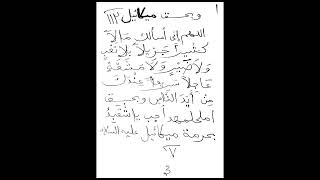 ١
وبحق ميكائيل ١١٢
اللهم إني أسألك مالا
كثيرا جزيلا بلا تعب
ولا ولا مشقة
عاجلا سريعا عندك
من أيد الناس وبحق
أجب يا
بحرمة ميكائيل عليه السلام
٧
3